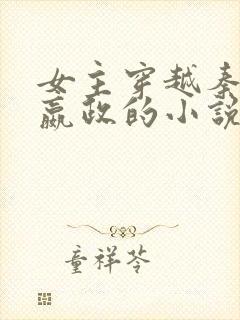 女主穿越秦
嬴政的小说
童祥苓